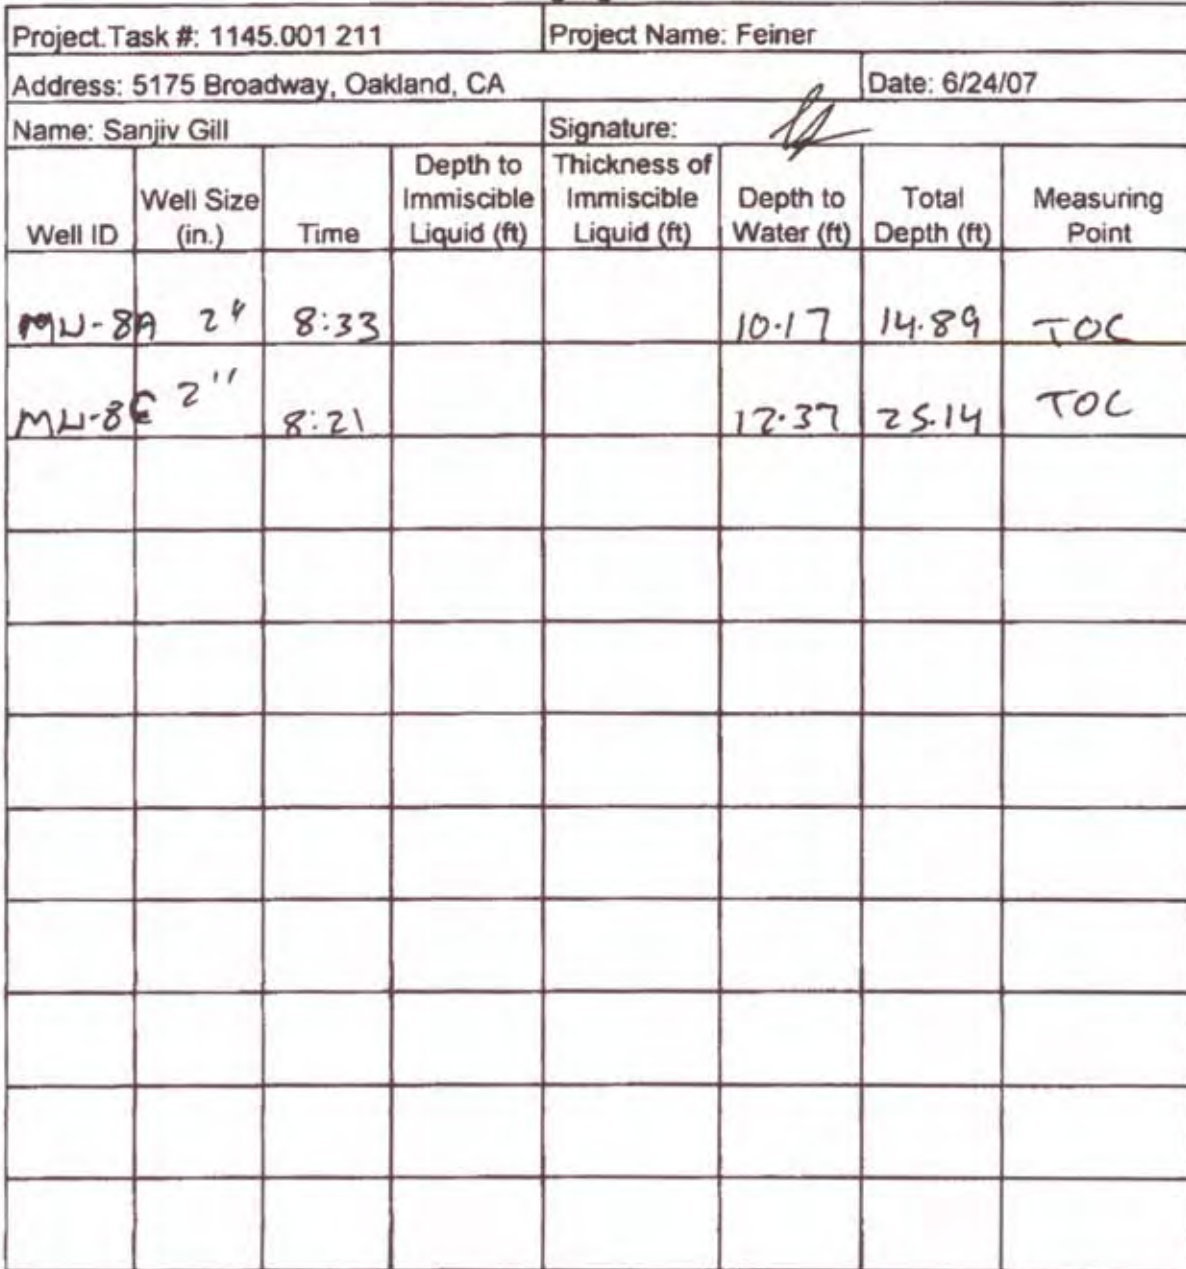 Project.Task #: 1145.001 211 Project Name: Feiner
Address: 5175 Broadway, Oakland, CA Date: 6/24/07
Name: Sanjiv Gill Signature:
Well ID Well Size (in.) Time Depth to Immiscible Liquid (ft) Thickness of Immiscible Liquid (ft) Depth to Water (ft) Total Depth (ft) Measuring Point
MW-8A 2" 8:33 10.17 14.89 TOC
2" 8:21 12.37 25.14 TOC